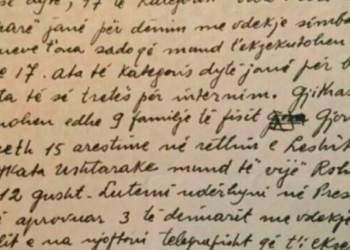 se dytë, 17 të kategoris
parë janë për dënim me vdekje simba
neve t'ona sado që mund t'ekzekutohen
e 17. Ata të kategoris dytë janë për b
ta të së tretës për internim. Gjithas
nohen edhe 9 familje të fisit Gjon
eth 15 arestime në rethin e Leshit
gjykata Ushtarake mund të vijë
12 gusht. Lutemi ndërhyni në Pres
aprovuar 3 të dënuarit me vdekje
lit e na njoftoni telegrafisht që t'i ekze